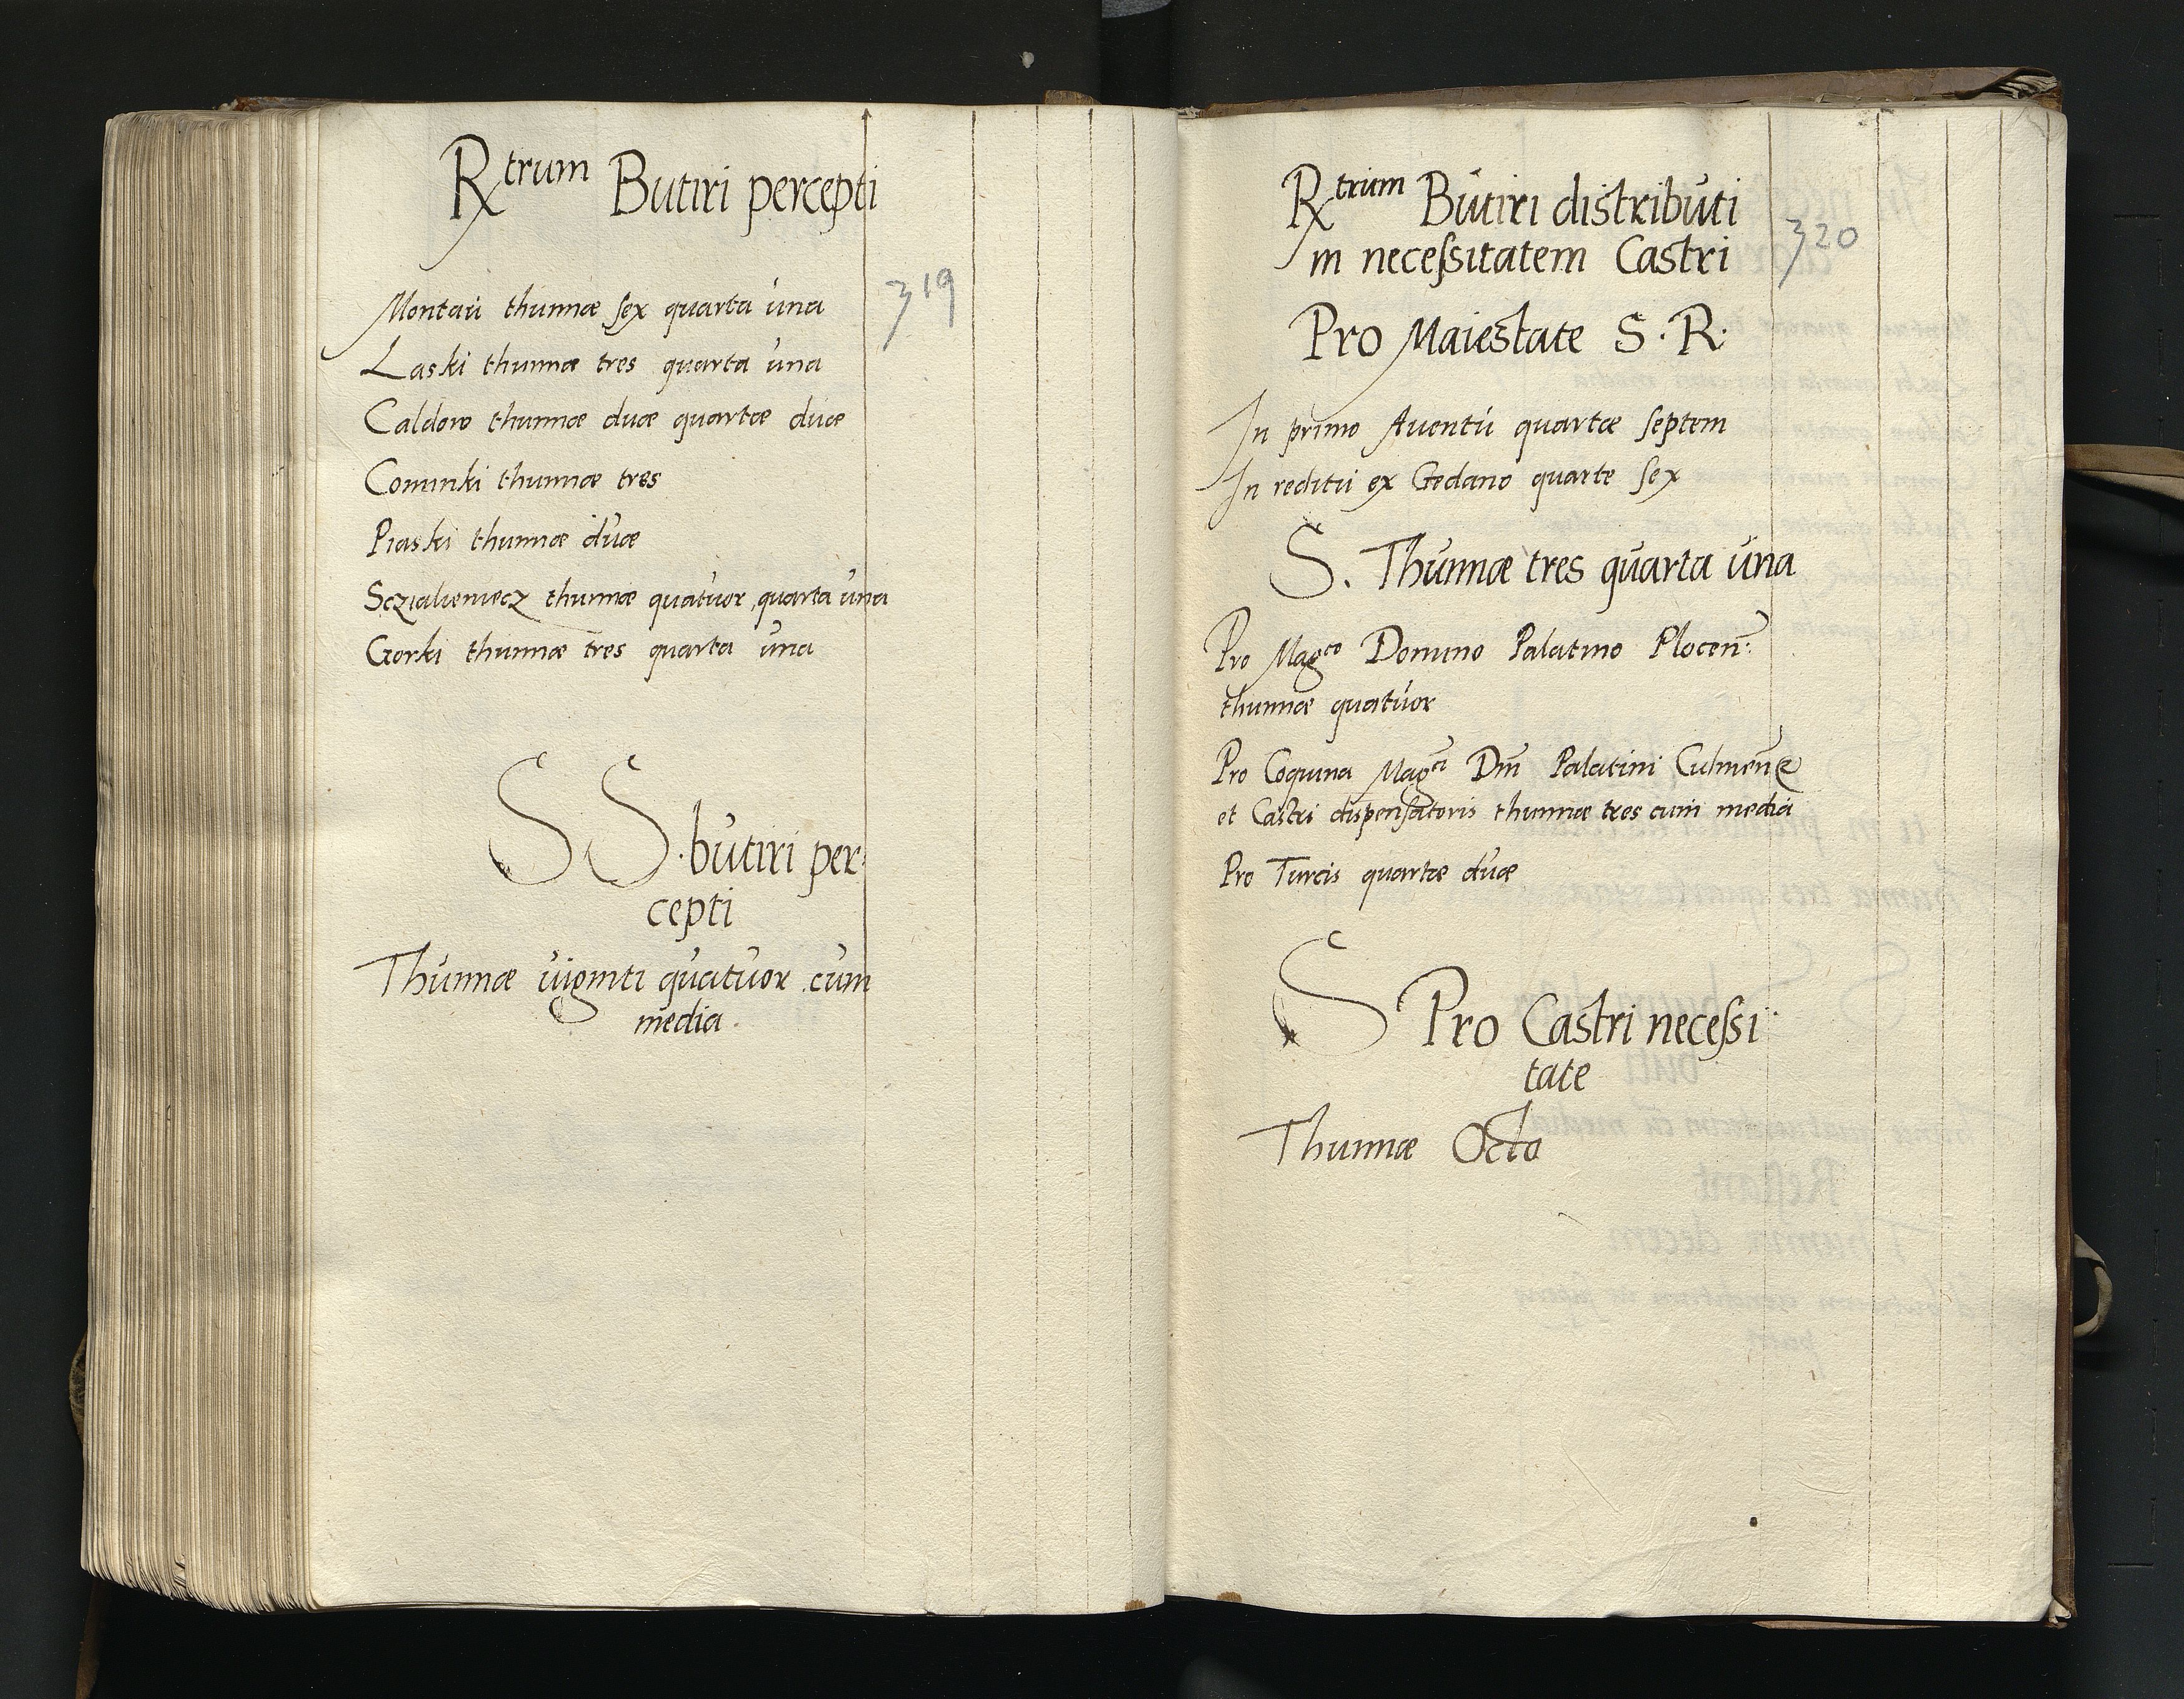 Rtrum Butiri percepti
319
Montaú thunnæ sex quarta úna
Laski thunnæ tres quarta úna
Caldowo thunnæ duæ quartæ duæ
Cominki thunnæ tres
Piaski thunnæ dúæ
Sczialieniecz thunnæ quatúor, quarta úna
Gorki thunnæ tres quarta úna
S S. bútiri per:
cepti
Thúnnæ úiginti quatúor cúm
media.
Rtrum Bútiri distribúti
320
in necessitatem Castri
Pro Maiestate S. R:
In primo Auentú quartæ septem
In reditú ex Gedano quarte sex
S. Thúnnæ tres quarta úna
Pro Magco Domino Palatino Plocen:
thunnæ quatúor
Pro Coquina Magci Dni Palatini Culmens
et Castri dispensatoris thunnæ tres cum media
Pro Turcis quartæ dúæ
S Pro Castri necessi
tate
Thunnæ Octo